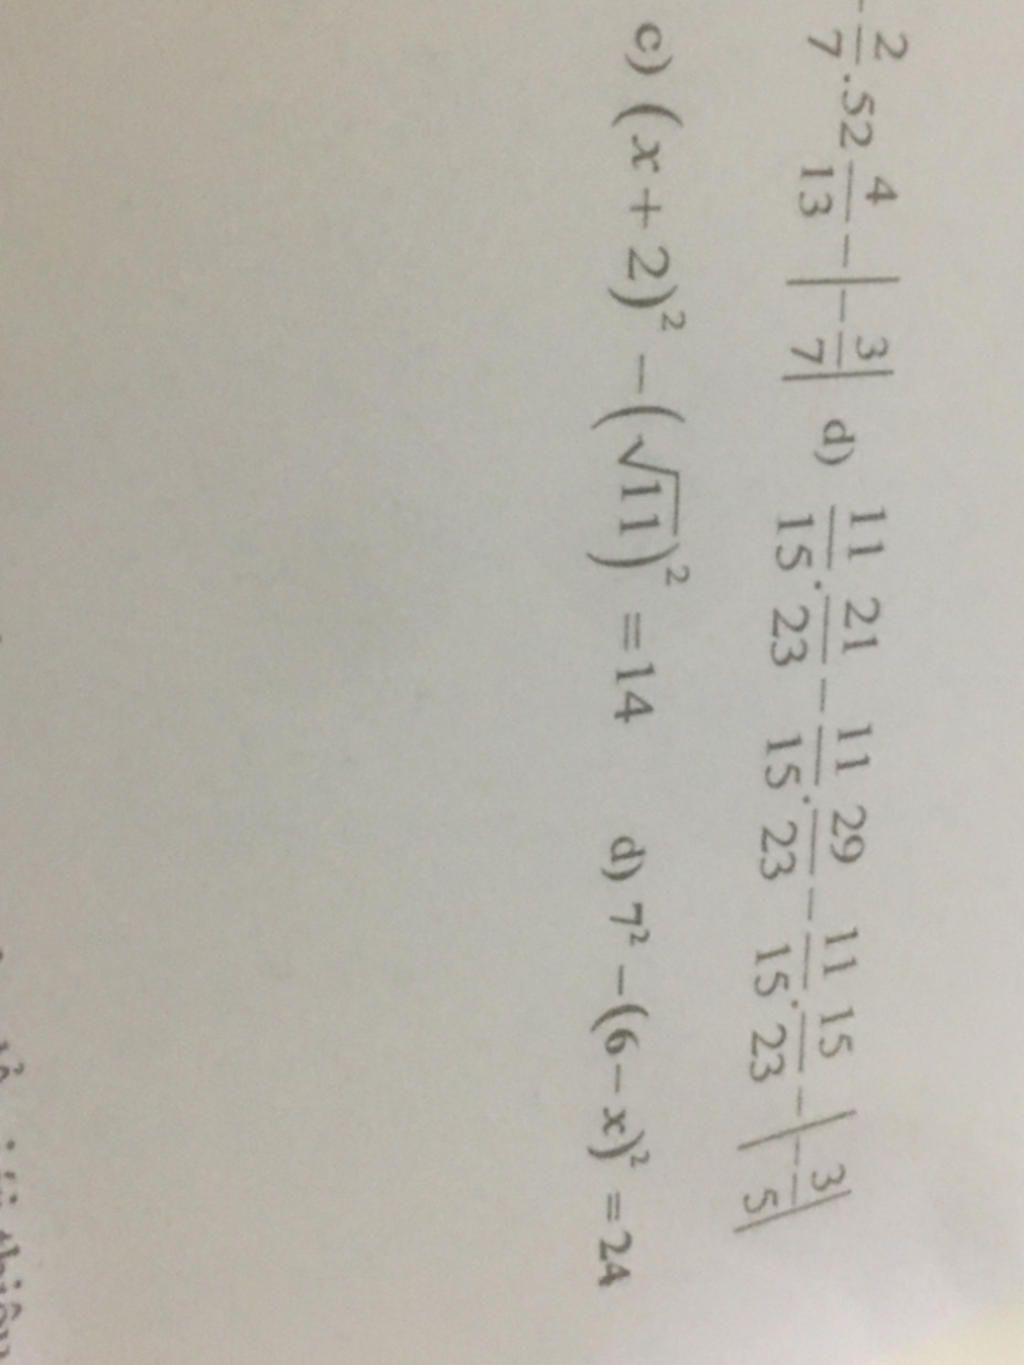 - \frac{2}{7} . 52 \frac{4}{13} - \left| -\frac{3}{7} \right| d) \frac{11}{15} . \frac{21}{23} - \frac{11}{15} . \frac{29}{23} - \frac{11}{15} . \frac{15}{23} - \left| -\frac{3}{5} \right|
c) (x + 2)² - (√11)² = 14 d) 7² - (6 - x)² = 24